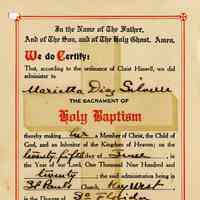 In the Name of The Father,
And of The Son, and of The Holy Ghost. Amen.
We do Certify:
That, according to the ordinance of Christ Himself, we did
administer to
Marietta Diaz
THE SACRAMENT OF
Holy Baptism
thereby making her a Member of Christ, the Child of
God, and an Inheritor of the Kingdom of Heaven; on the
twenty fifth day of June, in the
Year of our Lord, One Thousand Nine Hundred and
twenty; the said administration being in
St Pauls Church, Key West
in the Diocese of So Florida